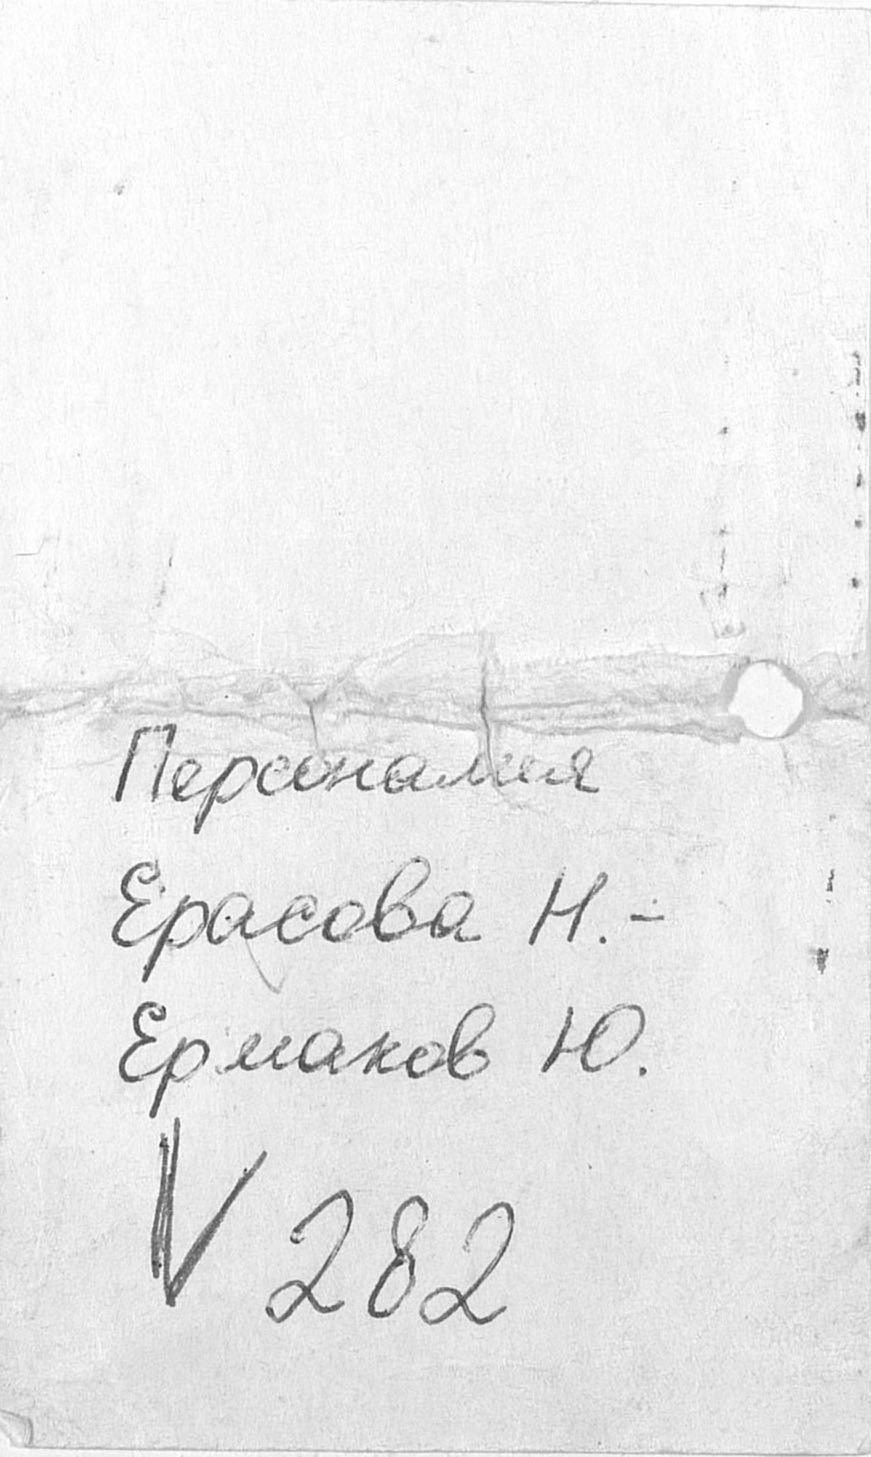 Персоналия
Ерасова Н.-
Ермаков Ю.
V 282